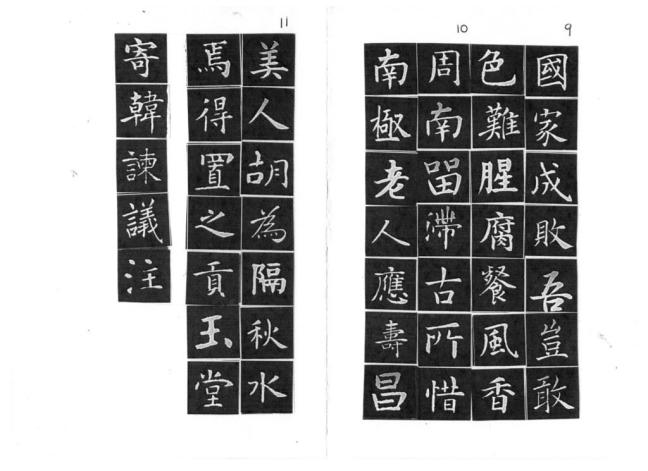 9
國家成敗吾豈敢
色難腥腐餐風香
10
周南留滯古所惜
南極老人應壽昌
11
美人胡為隔秋水
焉得置之貢玉堂
寄韓諫議注